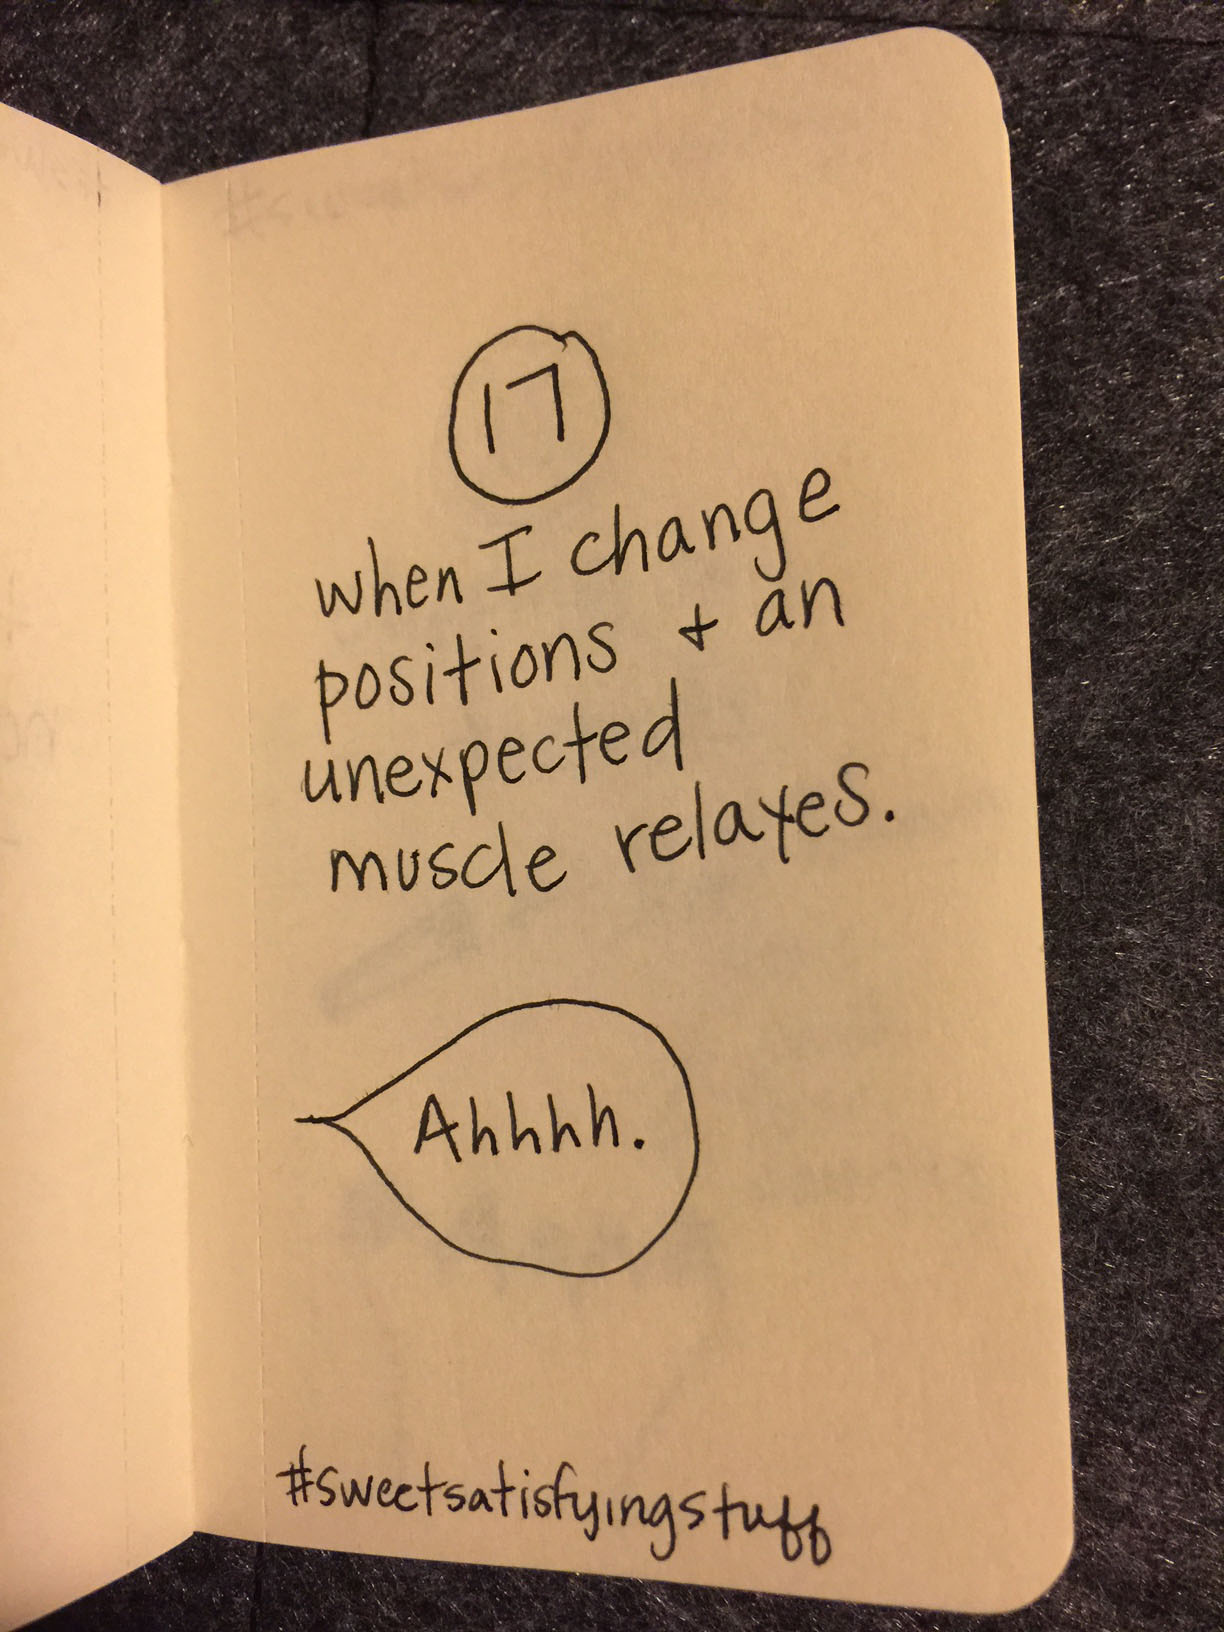 17
when I change
positions + an
unexpected
muscle relaxes.
Ahhhh.
#sweetsatisfyingstuff